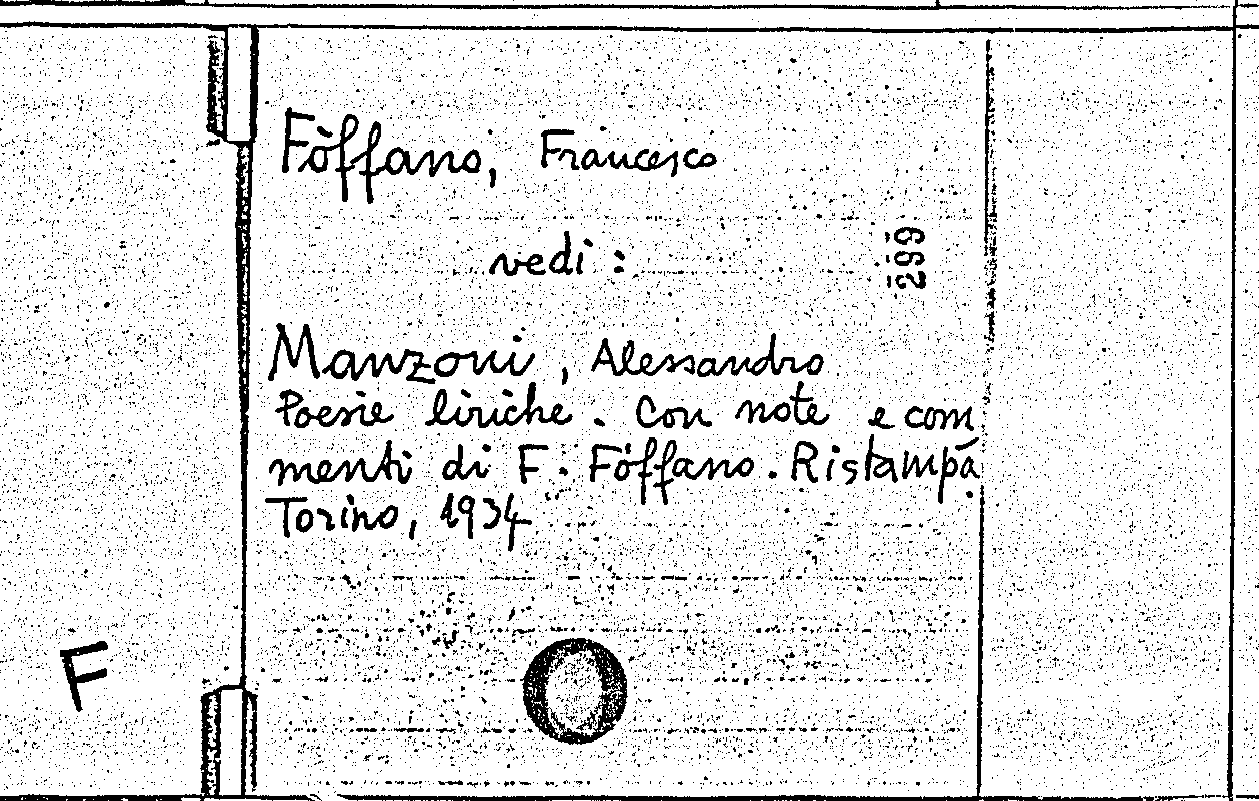 Fòffano, Francesco
vedi :
299
Manzoni, Alessandro
Poesie liriche. Con note e com
menti di F. Fòffano. Ristampa.
Torino, 1934
F